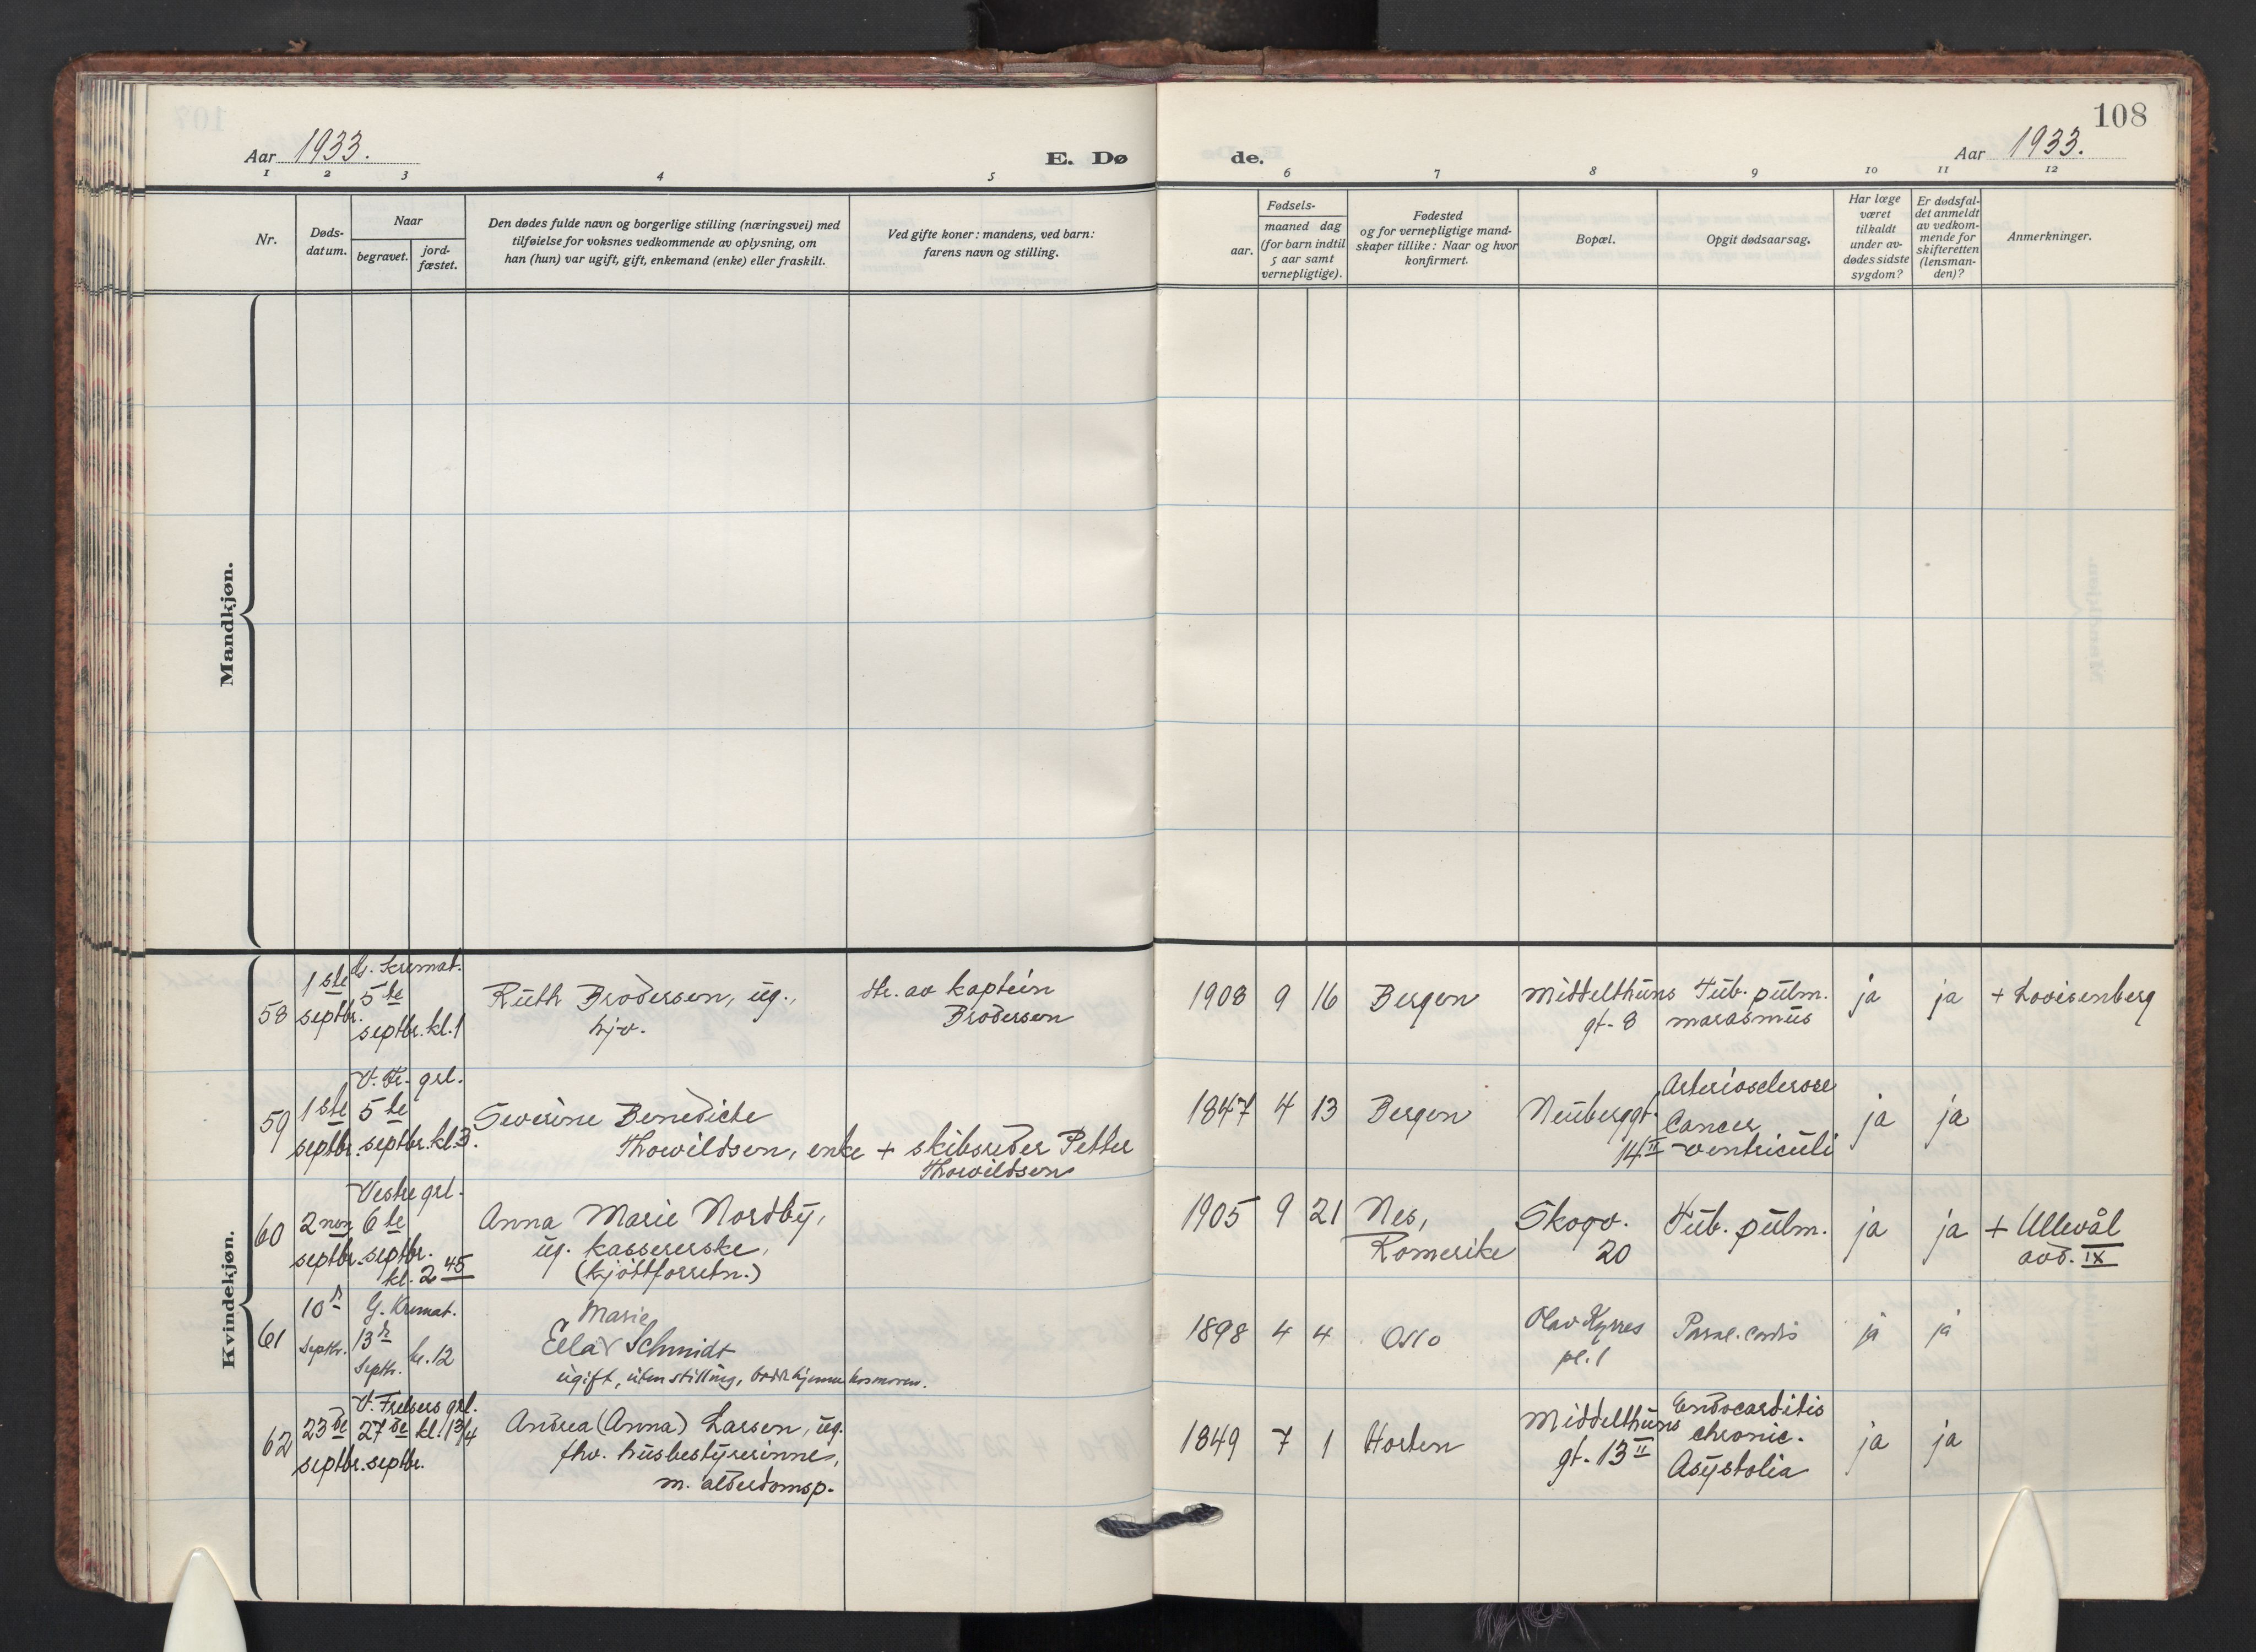 108
Aar 1933.
E. Dø
de.
Aar 1933.
1 2 3 4 5 6 7 8 9 10 11 12
Nr.
Døds-
datum.
Naar
begravet.
jord-
fæstet.
Den dødes fulde navn og borgerlige stilling (næringsvei) med
tilføielse for voksnes vedkommende av oplysning, om
han (hun) var ugift, gift, enkemand (enke) eller fraskilt.
Ved gifte koner: mandens, ved barn:
farens navn og stilling.
Fødsels-
aar.
maaned dag
(for barn indtil
5 aar samt
vernepligtige).
Fødested
og for vernepligtige mand-
skaper tillike: Naar og hvor
konfirmert.
Bopæl.
Opgit dødsaarsag.
Har læge
været
tilkaldt
under av-
dødes sidste
sygdom?
Er dødsfal-
det anmeldt
av vedkom-
mende for
skifteretten
(lensman-
den)?
Anmerkninger.
Mandkjøn.
Kvindekjøn.
58
1ste
septbr.
Kremat.
5te
septbr. kl. 1
Ruth Brodersen, ug.,
hjv.
dtr. av kaptein
Brodersen
1908 9 16
Bergen
Middelthuns
gt. 8
Tub. pulm.
marasmus
ja
ja
+ Lovisenberg
59
1ste
septbr.
V. Fr. grl.
5te
septbr. kl. 3.
Severine Benedicte
Thowildsen, enke + skibsreder Petter
Thowildsen
1847 4 13
Bergen
Neuberggt.
14 II
Arteriosclerose
Cancer
ventriculi
ja
ja
60
2nen
septbr.
Vestre grl.
6te
septbr.
kl. 2 45
Anna Marie Nordby,
ug. kassererske,
(kjøttforretn.)
1905 9 21
Nes,
Romerike
Skogv.
20
Tub. pulm.
ja
ja
+ Ullevål
avd. IX
61
10
Septbr.
G. Kremat.
13de
Septbr. kl. 12
Marie
Ella Schmidt
ugift, uten stilling, hjemme hos moren.
1898 4 4
Oslo
Olav Kyrres
pl. 1
Paral. cordis
ja
ja
62
23de
septbr.
V. Frelsers grl.
27de kl. 1 3/4
septbr.
Andrea (Anna) Larsen, ug.
fhv. husbestyrerinne,
m. alderdomsp.
1849 7 1
Horten
Middelthuns
gt. 13 II
Endocarditis
chronic.
Asystolia
ja
ja